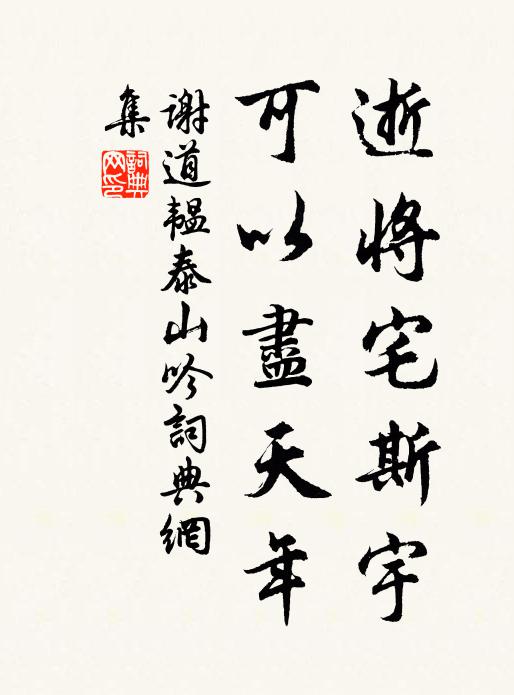 逝將宅斯宇
可以盡天年
謝道韞泰山吟詞典網
集
詞典
网印